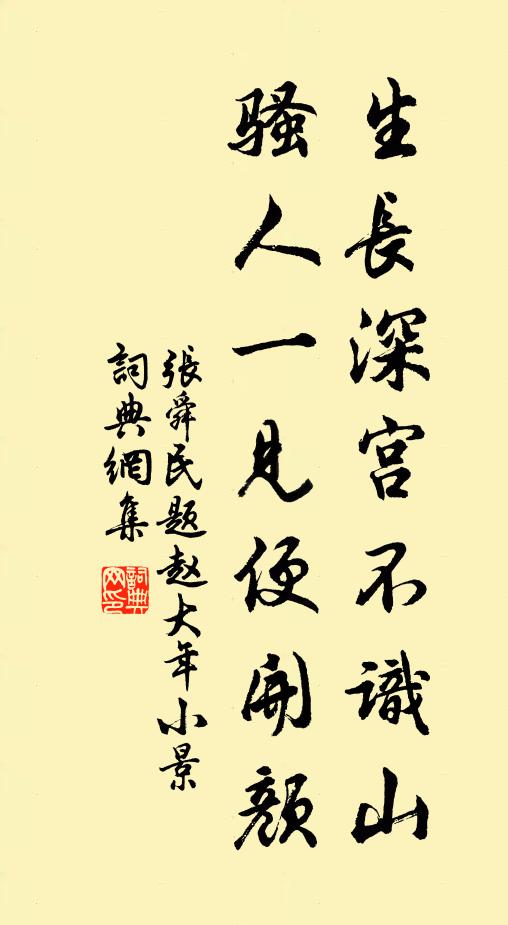 生長深宮不識山
騷人一見便開顏
張舜民題赵大年小景
詞典網集
詞典網印